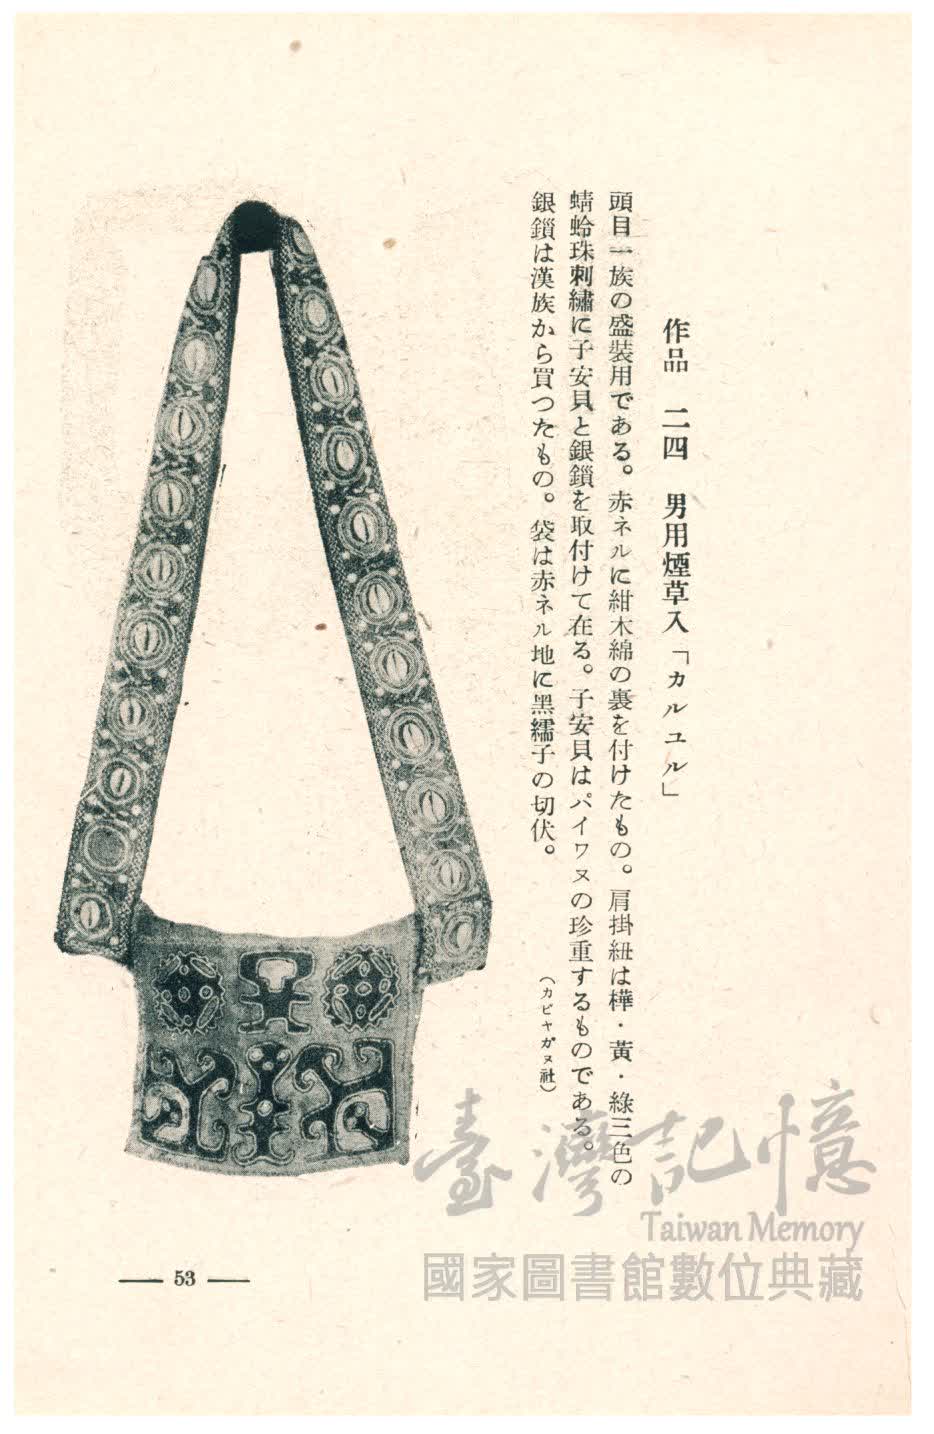 作品 二四 男用煙草入「カルユル」
頭目一族の盛裝用である。赤ネルに紺木綿の裏を付けたもの。肩掛紐は樺・黃・綠三色の
蜻蛉珠刺繡に子安貝と銀鎖を取付けて在る。子安貝はパイワヌの珍重するものである。
銀鎖は漢族から買つたもの。袋は赤ネル地に黑繻子の切伏。
（カピヤガヌ社）
— 53 —
臺灣記憶
Taiwan Memory
國家圖書館數位典藏